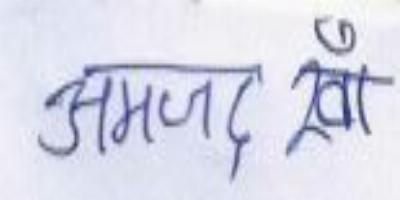 अमजद खाँ